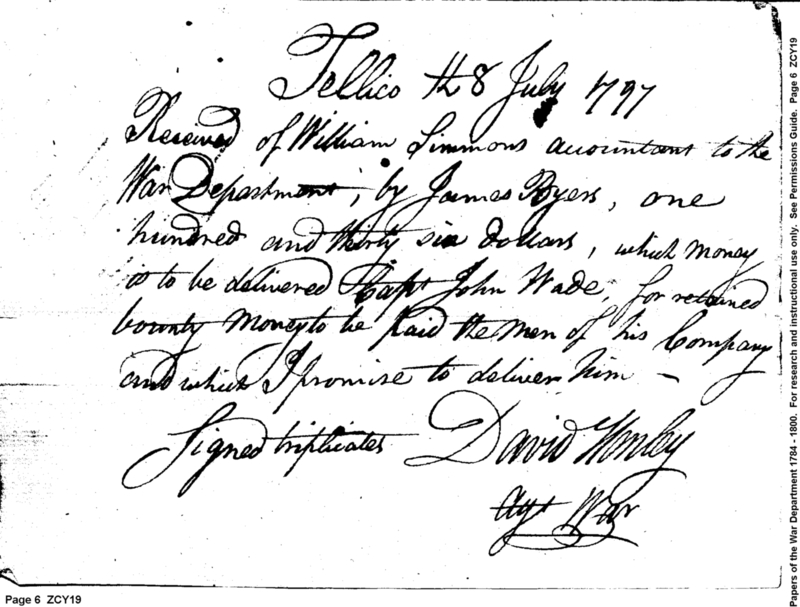 Tellico th 8 July 1797
Received of William Simmons accountant to the
War Department, by James Byers, one
hundred and thirty six dollars, which money
is to be delivered Capt John Wade, for retained
bounty Money to be paid the men of his Company
and which I promise to deliver him –
Signed triplicates David Henley
Agt War
Page 6 ZCY19
Papers of the War Department 1784 - 1800. For research and instructional use only. See Permissions Guide. Page 6 ZCY19